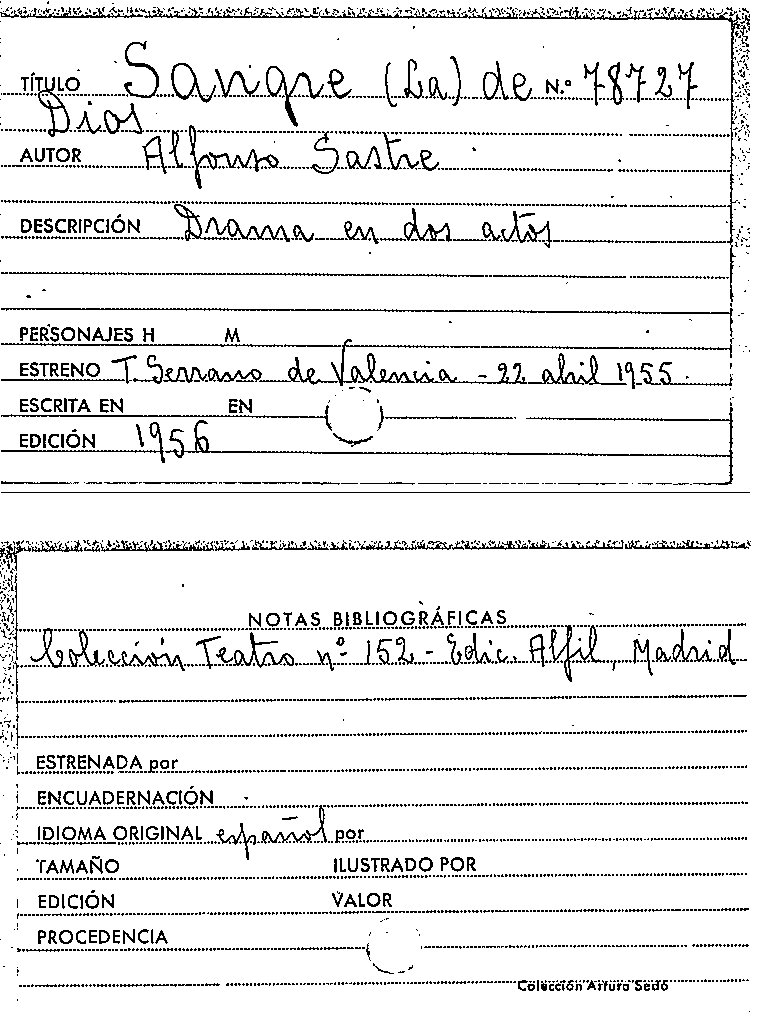 TÍTULO Sangre (La) de N.º 78727
Dios
AUTOR Alfonso Sastre
DESCRIPCIÓN Drama en dos actos
PERSONAJES H M
ESTRENO T. Serrano de Valencia - 22 abril 1955.
ESCRITA EN EN
EDICIÓN 1956
NOTAS BIBLIOGRÁFICAS
Colección Teatro nº 152 - Edic. Alfil, Madrid
ESTRENADA por
ENCUADERNACIÓN
IDIOMA ORIGINAL español por
TAMAÑO ILUSTRADO POR
EDICIÓN VALOR
PROCEDENCIA
Colección Arturo Sedó